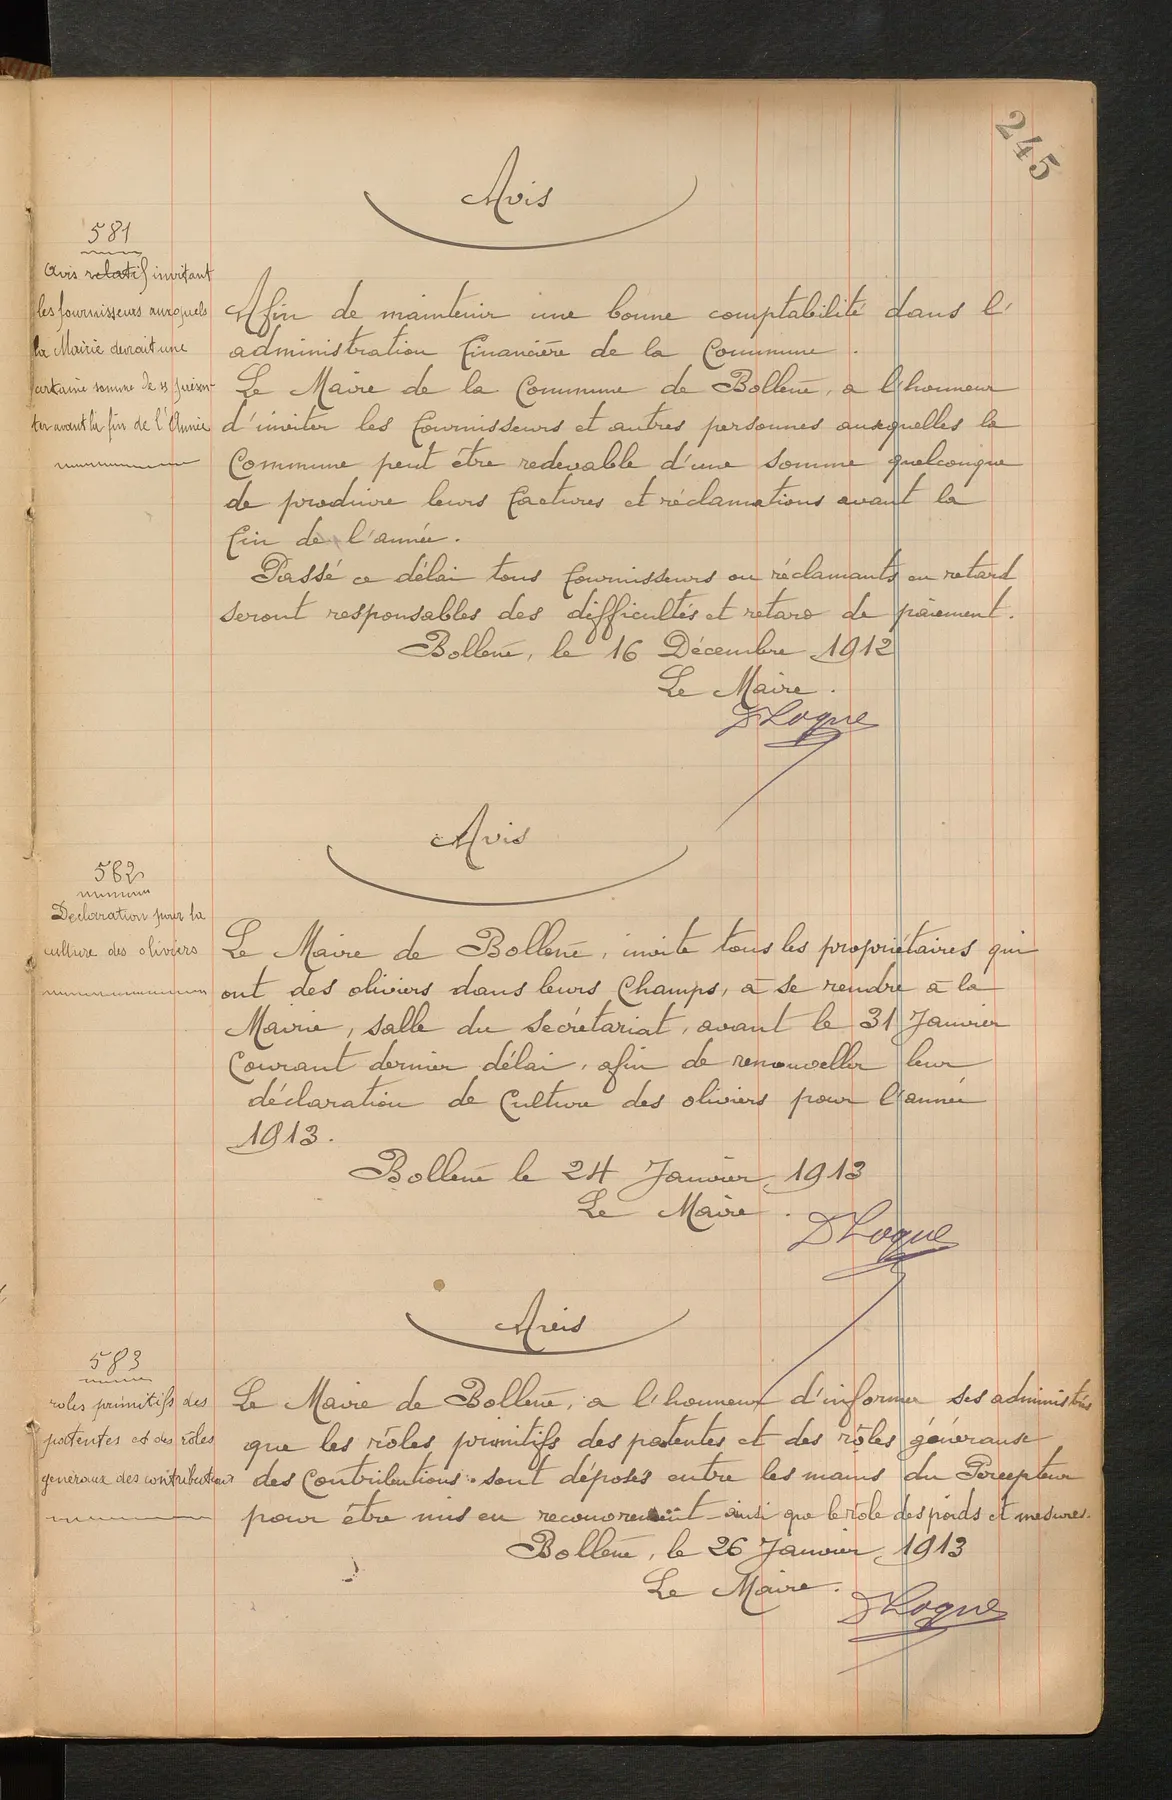 245
Avis
581
Avis relatif invitant
les fournisseurs auxquels
la Mairie devrait une
certaine somme de s présen-
ter avant la fin de l'Année
Afin de maintenir une bonne comptabilité dans l'
administration financière de la Commune.
Le Maire de la Commune de Bollène, a l'honneur
d'inviter les fournisseurs et autres personnes auxquelles la
Commune peut être redevable d'une somme quelconque
de produire leurs factures et réclamations avant la
fin de l'année.
Passé ce délai tous fournisseurs ou réclamants en retard
seront responsables des difficultés et retard de paiement.
Bollène, le 16 Décembre 1912
Le Maire.
D Loque
Avis
582
Declaration pour la
culture des oliviers
Le Maire de Bollène, invite tous les propriétaires qui
ont des oliviers dans leurs champs, à se rendre à la
Mairie, salle du secrétariat, avant le 31 Janvier
Courant dernier délai, afin de renouveller leur
déclaration de Culture des oliviers pour l'année
1913.
Bollène le 24 Janvier 1913
Le Maire.
D Loque
Avis
583
roles primitifs des
patentes et des rôles
generaux des contributions
Le Maire de Bollène, a l'honneur d'informer ses administrés
que les rôles primitifs des patentes et des rôles généraux
des Contributions sont déposés entre les mains du Percepteur
pour être mis en recouvrement ainsi que le rôle des poids et mesures.
Bollène, le 26 Janvier 1913
Le Maire.
D Loque